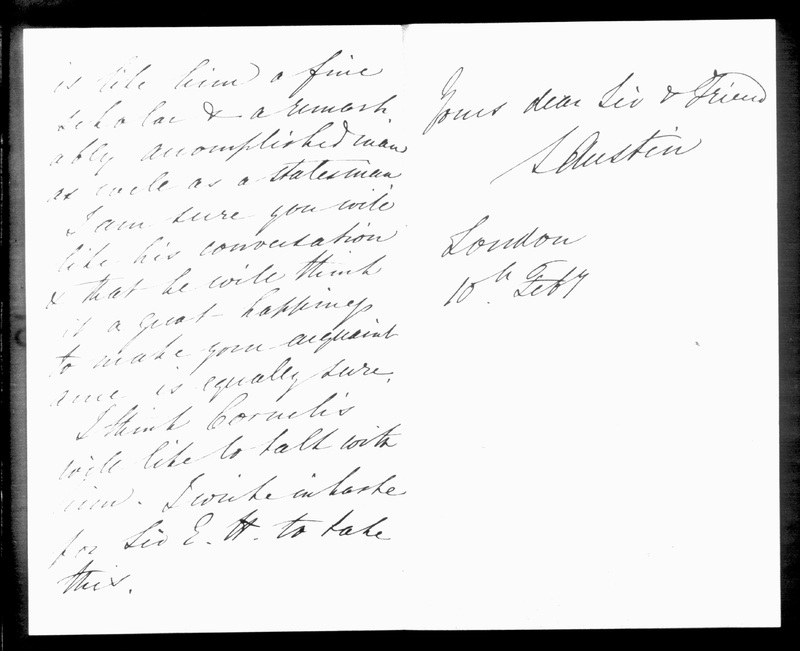 is like him a fine
scholar & a remark
ably accomplished man
as well as a statesman
I am sure you will
like his conversation
& that he will think
it a great happiness
to make your acquaint
ance is equally sure.
I think Cornelis
will like to talk with
him. I write in haste
for Sir E. H. to take
this.
Yours dear Sir & Friend
S Austin
London
10th Feby